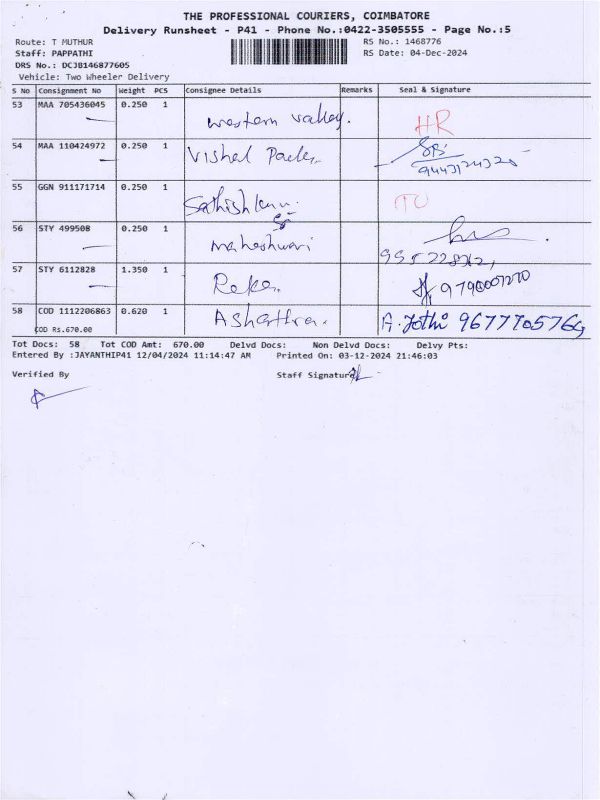 THE PROFESSIONAL COURIERS, COIMBATORE
Delivery Runsheet - P41 - Phone No.:0422-3505555 - Page No.:5
Route: T MUTHUR RS No.: 1468776
Staff: PAPPATHI RS Date: 04-Dec-2024
DRS No.: DCJB146877605
Vehicle: Two Wheeler Delivery
S No Consignment No Weight PCS Consignee Details Remarks Seal & Signature
53 MAA 705436045 0.250 1 western valley. HR
54 MAA 110424972 0.250 1 Vishal
55 GGN 911171714 0.250 1
56 STY 499508 0.250 1 maheshwari
57 STY 6112828 1.350 1 Reka.
58 COD 1112206863 0.620 1 A. Jothi
COD RS.670.00
Tot Docs: 58 Tot COD Amt: 670.00 Delvd Docs: Non Delvd Docs: Delvy Pts:
Entered By :JAYANTHIP41 12/04/2024 11:14:47 AM Printed On: 03-12-2024 21:46:03
Verified By Staff Signature